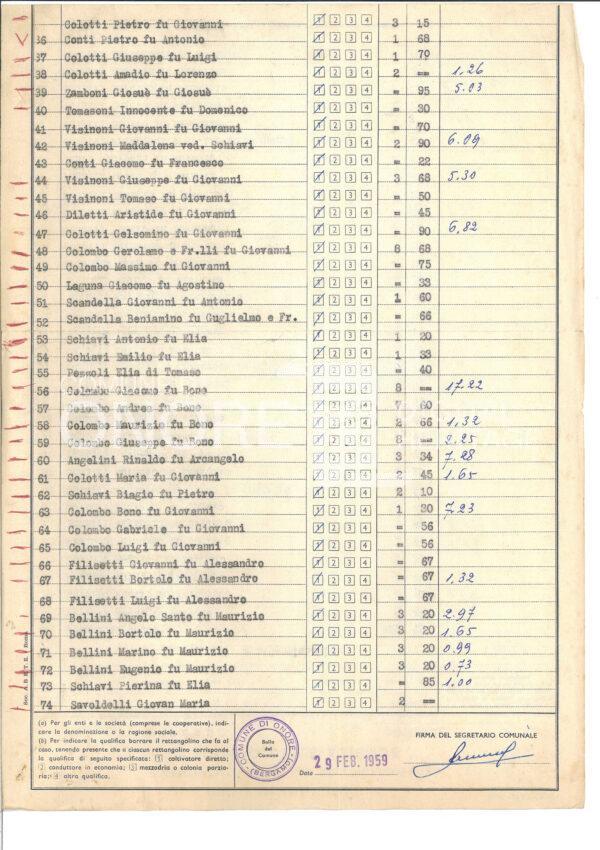 Colotti Pietro fu Giovanni 1 2 3 4 3 15
36 Conti Pietro fu Antonio 1 2 3 4 1 68
37 Colotti Giuseppe fu Luigi 1 2 3 4 1 70
38 Colotti Amadio fu Lorenzo 1 2 3 4 2 == 1,26
39 Zamboni Giosuè fu Giosuè 1 2 3 4 = 95 5.03
40 Tomasoni Innocente fu Domenico 1 2 3 4 = 30
41 Visinoni Giovanni fu Giovanni 1 2 3 4 = 70
42 Visinoni Maddalena ved. Schiavi 1 2 3 4 2 90 6.09
43 Conti Giacomo fu Francesco 1 2 3 4 = 22
44 Visinoni Giuseppe fu Giovanni 1 2 3 4 3 68 5.30
45 Visinoni Tomaso fu Giovanni 1 2 3 4 = 50
46 Diletti Aristide fu Giovanni 1 2 3 4 = 45
47 Colotti Gelsomino fu Giovanni 1 2 3 4 = 90 6,82
48 Colombo Gerolamo e Fr.lli fu Giovanni 1 2 3 4 8 68
49 Colombo Massimo fu Giovanni 1 2 3 4 = 75
50 Laguna Giacomo fu Agostino 1 2 3 4 = 33
51 Scandella Giovanni fu Antonio 1 2 3 4 1 60
52 Scandella Beniamino fu Guglielmo e Fr. 1 2 3 4 = 66
53 Schiavi Antonio fu Elia 1 2 3 4 1 20
54 Schiavi Emilio fu Elia 1 2 3 4 1 33
55 Pezzoli Elia di Tomaso 1 2 3 4 = 40
56 Colombo Giacomo fu Bono 1 2 3 4 8 == 17.22
57 Colombo Andrea fu Bono 1 2 3 4 7 60
58 Colombo Maurizio fu Bono 1 2 3 4 2 66 1,32
59 Colombo Giuseppe fu Bono 1 2 3 4 8 == 2.25
60 Angelini Rinaldo fu Arcangelo 1 2 3 4 3 34 7.28
61 Colotti Maria fu Giovanni 1 2 3 4 2 45 1.65
62 Schiavi Biagio fu Pietro 1 2 3 4 2 10
63 Colombo Bono fu Giovanni 1 2 3 4 1 30 7.23
64 Colombo Gabriele fu Giovanni 1 2 3 4 = 56
65 Colombo Luigi fu Giovanni 1 2 3 4 = 56
66 Filisetti Giovanni fu Alessandro 1 2 3 4 = 67
67 Filisetti Bortolo fu Alessandro 1 2 3 4 = 67 1,32
68 Filisetti Luigi fu Alessandro 1 2 3 4 = 67
69 Bellini Angelo Santo fu Maurizio 1 2 3 4 3 20 2.97
70 Bellini Bortolo fu Maurizio 1 2 3 4 3 20 1.65
71 Bellini Marino fu Maurizio 1 2 3 4 3 20 0.99
72 Bellini Eugenio fu Maurizio 1 2 3 4 3 20 0,73
73 Schiavi Pierina fu Elia 1 2 3 4 = 85 1,00
74 Savoldelli Giovan Maria 1 2 3 4 2 ==
(a) Per gli enti e le società (comprese le cooperative), indi-
care la denominazione o la ragione sociale.
(b) Per indicare la qualifica barrare il rettangolino che fa al
caso, tenendo presente che a ciascun rettangolino corrisponde
la qualifica di seguito specificata: 1 coltivatore diretto;
2 conduttore in economia; 3 mezzadria o colonia parzia-
ria; 4 altra qualifica.
COMUNE DI ONORE
(BERGAMO)
Bollo
del
Comune
Data 29 FEB. 1959
FIRMA DEL SEGRETARIO COMUNALE